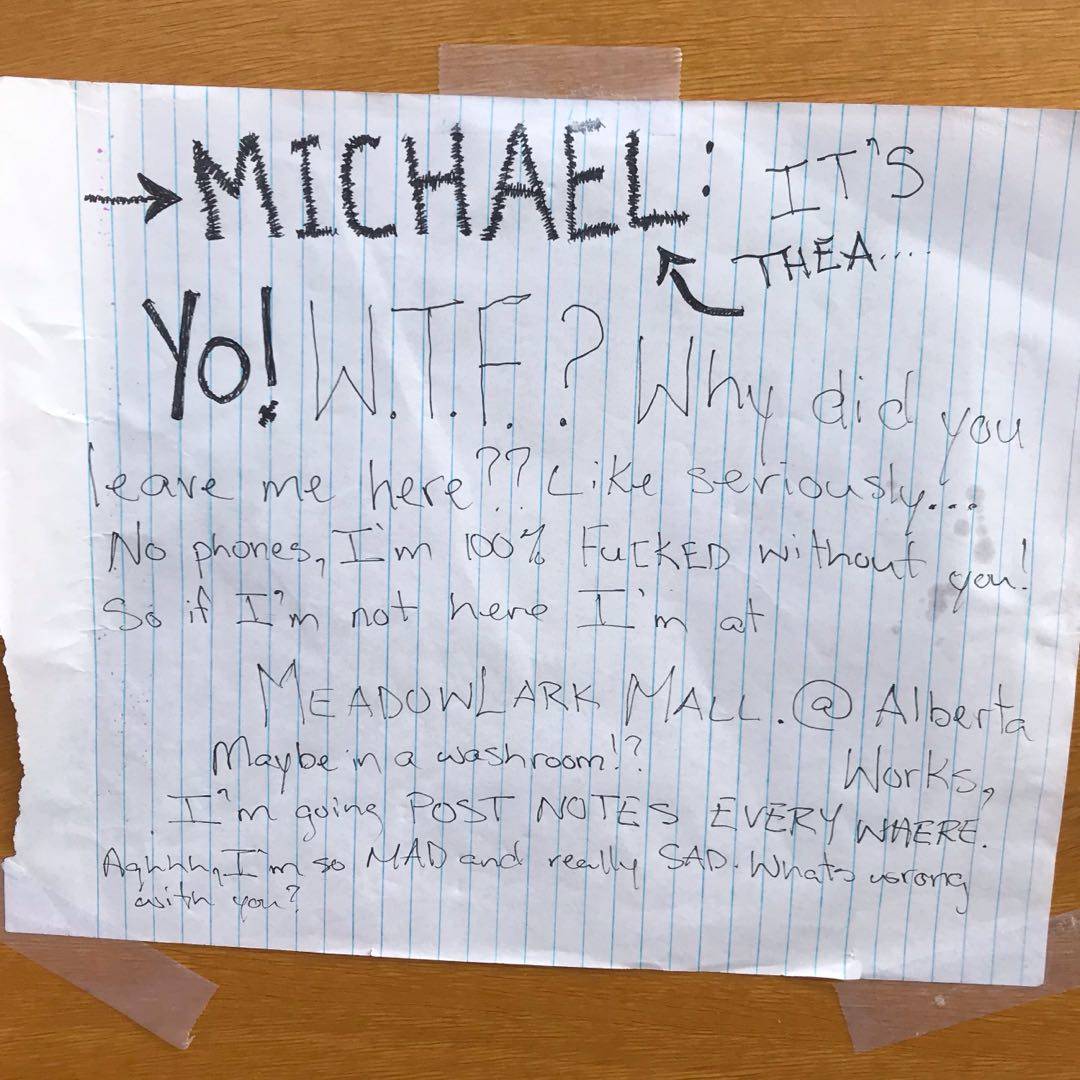 →MICHAEL: IT'S
THEA....
Yo! W.T.F.? Why did you
leave me here?? Like seriously...
No phones, I'm 100% FucKED without you!
So if I'm not here I'm at
MEADOWLARK MALL. @ Alberta
Maybe in a washroom!? Works,
I'm going POST NOTES EVERY WHERE.
Aghhhh, I'm so MAD and really SAD. Whats wrong
with you?